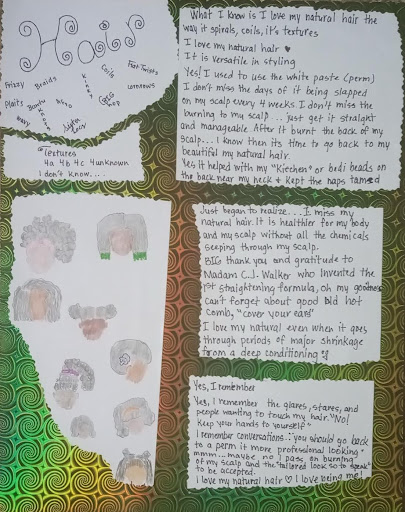 Hair
Frizzy
Braids
Kinky
Coils
Flat Twists
Plaits
Bantu Knots
Afro
cornrows
Wavy
Textures
4a 4b 4c 4unknown
I don't know....
What I know is I love my natural hair the
way it spirals, coils, it's textures
I love my natural hair ♥
It is versatile in styling
Yes, I used to use the white paste (perm)
I don't miss the days of it being slapped
on my scalp every 4 weeks I don't miss the
burning to my scalp... just get it straight
and manageable After it burnt the back of my
scalp... I know then its time to go back to my
beautiful my natural hair.
Yes it helped with my "Kitchen" or bedi beads on
the back near my neck & kept the naps tamed
Just began to realize... I miss my
natural hair. It is healthier for my body
and my scalp without all the chemicals
seeping through my scalp.
BIG thank you and gratitude to
Madam C.J. Walker who invented the
1st straightening formula, oh my goodness
Can't forget about good old hot
comb, "cover your ears"
I love my natural even when it goes
through periods of major shrinkage
from a deep conditioning
Yes, I remember
Yes, I remember the glares, stares, and
people wanting to touch my hair. "No!
Keep your hands to yourself"
I remember conversations: "you should go back
to a perm it more professional looking"
mmm... maybe no I pass on burning
of my scalp and the "tailored look so to speak"
to be accepted.
I love my natural hair ♡ I love being me!